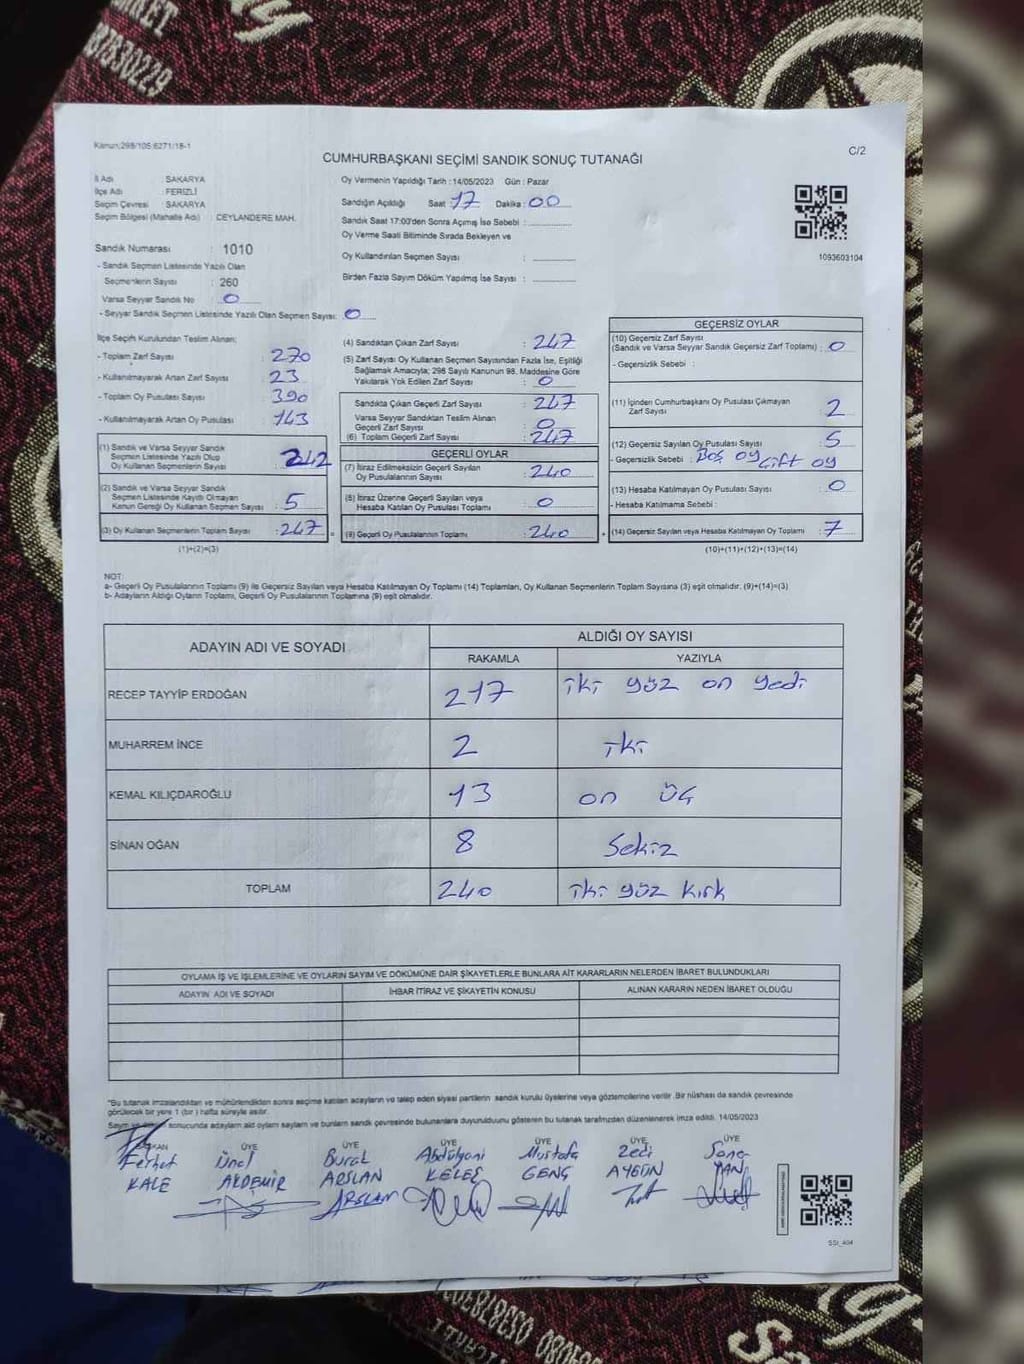 Kanun:298/105;6271/18-1
CUMHURBAŞKANI SEÇİMİ SANDIK SONUÇ TUTANAĞI
C/2
İl Adı : SAKARYA
İlçe Adı : FERİZLİ
Seçim Çevresi : SAKARYA
Seçim Bölgesi (Mahalle Adı) : CEYLANDERE MAH.
Oy Vermenin Yapıldığı Tarih : 14/05/2023 Gün : Pazar
Sandığın Açıldığı Saat : 17 Dakika : 00
Sandık Saat 17:00'den Sonra Açımış İse Sebebi :
Oy Verme Saati Bitiminde Sırada Bekleyen ve
Oy Kullandırılan Seçmen Sayısı :
Birden Fazla Sayım Döküm Yapılmış İse Sayısı :
1093603104
Sandık Numarası : 1010
- Sandık Seçmen Listesinde Yazılı Olan
Seçmenlerin Sayısı : 260
Varsa Seyyar Sandık No : 0
- Seyyar Sandık Seçmen Listesinde Yazılı Olan Seçmen Sayısı: 0
İlçe Seçim Kurulundan Teslim Alınan;
- Toplam Zarf Sayısı : 270
- Kullanılmayarak Artan Zarf Sayısı : 23
- Toplam Oy Pusulası Sayısı : 390
- Kullanılmayarak Artan Oy Pusulası : 143
(1) Sandık ve Varsa Seyyar Sandık
Seçmen Listesinde Yazılı Olup
Oy Kullanan Seçmenlerin Sayısı : 242
(2) Sandık ve Varsa Seyyar Sandık
Seçmen Listesinde Kayıtlı Olmayan
Kanun Gereği Oy Kullanan Seçmen Sayısı : 5
(3) Oy Kullanan Seçmenlerin Toplam Sayısı : 247
(1)+(2)=(3)
(4) Sandıktan Çıkan Zarf Sayısı : 247
(5) Zarf Sayısı Oy Kullanan Seçmen Sayısından Fazla İse, Eşitliği
Sağlamak Amacıyla; 298 Sayılı Kanunun 98. Maddesine Göre
Yakılarak Yok Edilen Zarf Sayısı : 0
Sandıkta Çıkan Geçerli Zarf Sayısı : 247
Varsa Seyyar Sandıktan Teslim Alınan
Geçerli Zarf Sayısı : 0
(6) Toplam Geçerli Zarf Sayısı : 247
GEÇERLİ OYLAR
(7) İtiraz Edilmeksizin Geçerli Sayılan
Oy Pusulasının Sayısı : 240
(8) İtiraz Üzerine Geçerli Sayılan veya
Hesaba Katılan Oy Pusulası Toplamı : 0
(9) Geçerli Oy Pusulalarının Toplamı : 240
GEÇERSİZ OYLAR
(10) Geçersiz Zarf Sayısı
(Sandık ve Varsa Seyyar Sandık Geçersiz Zarf Toplamı) : 0
- Geçersizlik Sebebi :
(11) İçinden Cumhurbaşkanı Oy Pusulası Çıkmayan
Zarf Sayısı : 2
(12) Geçersiz Sayılan Oy Pusulası Sayısı : 5
- Geçersizlik Sebebi : Boş oy çift oy
(13) Hesaba Katılmayan Oy Pusulası Sayısı : 0
- Hesaba Katılmama Sebebi :
(14) Geçersiz Sayılan veya Hesaba Katılmayan Oy Toplamı : 7
(10)+(11)+(12)+(13)=(14)
NOT:
a- Geçerli Oy Pusulalarının Toplamı (9) ile Geçersiz Sayılan veya Hesaba Katılmayan Oy Toplamı (14) Toplamları, Oy Kullanan Seçmenlerin Toplam Sayısına (3) eşit olmalıdır. (9)+(14)=(3)
b- Adayların Aldığı Oyların Toplamı, Geçerli Oy Pusulalarının Toplamına (9) eşit olmalıdır.
ADAYIN ADI VE SOYADI
ALDIĞI OY SAYISI
RAKAMLA YAZIYLA
RECEP TAYYİP ERDOĞAN 217 iki yüz on yedi
MUHARREM İNCE 2 iki
KEMAL KILIÇDAROĞLU 13 on üç
SİNAN OĞAN 8 Sekiz
TOPLAM 240 iki yüz kırk
OYLAMA İŞ VE İŞLEMLERİNE VE OYLARIN SAYIM VE DÖKÜMÜNE DAİR ŞİKAYETLERLE BUNLARA AİT KARARLARIN NELERDEN İBARET BULUNDUKLARI
ADAYIN ADI VE SOYADI İHBAR İTİRAZ VE ŞİKAYETİN KONUSU ALINAN KARARIN NEDEN İBARET OLDUĞU
"Bu tutanak imzalandıktan ve mühürlendikten sonra seçime katılan adayların ve talep eden siyasi partilerin sandık kurulu üyelerine veya gözlemcilerine verilir. Bir nüshası da sandık çevresinde
görülecek bir yere 1 (bir) hafta süreyle asılır.
Sayım sonucunda adayların aldığı oyların sayılarını ve bunların sandık çevresinde bulunanlara duyurulduğunu gösteren bu tutanak tarafımızdan düzenlenerek imza edildi. 14/05/2023
BAŞKAN ÜYE ÜYE ÜYE ÜYE ÜYE ÜYE
Ferhat Ünal Burak Abdülgani Mustafa Zeki
KALE AKDEMİR ARSLAN KELEŞ GENÇ AYGÜN
ARSLAN
SSI_404